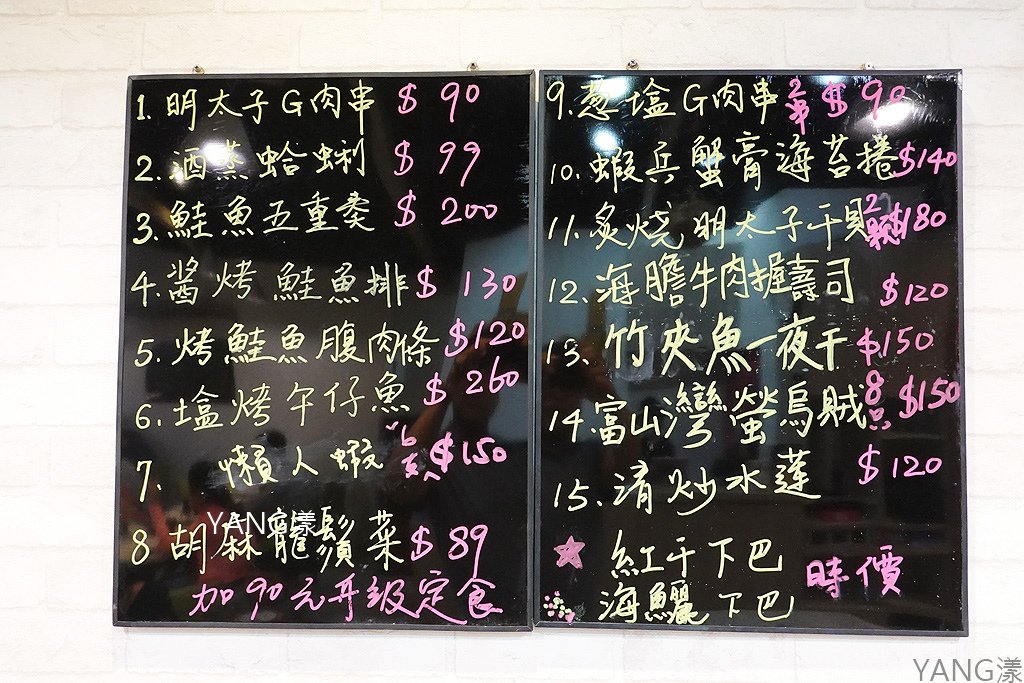 1. 明太子G肉串 $ 90
2. 酒蒸蛤蜊 $ 99
3. 鮭魚五重奏 $ 200
4. 醬烤鮭魚排 $ 130
5. 烤鮭魚腹肉條 $120
6. 塩烤午仔魚 $ 260
7. 懶人蝦 6支入 $150
8 胡麻龍鬚菜 $ 89
加90元升級定食
9. 葱塩G肉串 2串 $ 90
10. 蝦兵蟹膏海苔捲 $140
11. 炙燒明太子干貝 2顆 $180
12. 海膽牛肉握壽司 $120
13. 竹夾魚一夜干 $150
14. 富山灣螢烏賊 8只 $150
15. 清炒水蓮 $120
紅干下巴 時價
海鱺下巴
YANG漾
YANG漾